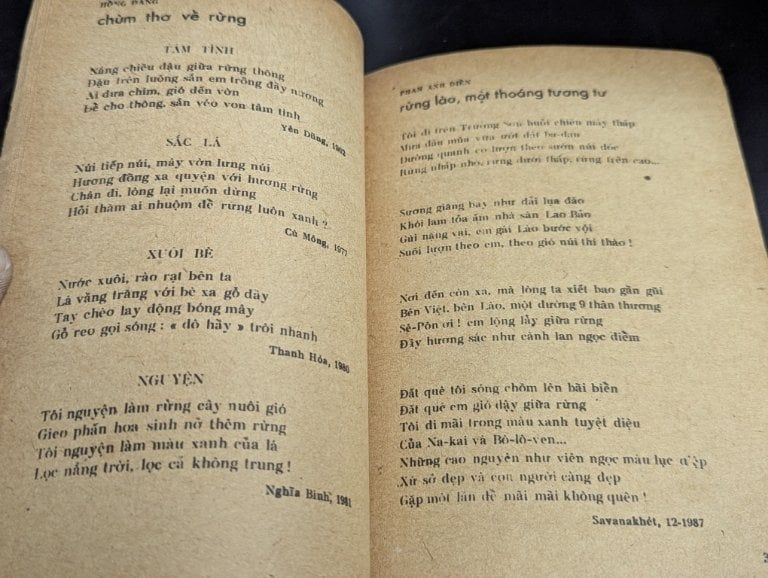 HỒNG ĐĂNG
chùm thơ về rừng
TÂM TÌNH
Nắng chiều đậu giữa rừng thông
Đậu trên luống sắn em trồng đầy nương
Ai đưa chim, gió đến vờn
Để cho thông, sắn véo von tâm tình
Yên Dũng, 1962
SẮC LÁ
Núi tiếp núi, mây vờn lưng núi
Hương đồng xa quyện với hương rừng
Chân đi, lòng lại muốn dừng
Hỏi thăm ai nhuộm để rừng luôn xanh ?
Cù Mông, 1977
XUÔI BÈ
Nước xuôi, rào rạt bên ta
Lá vầng trăng với bè xa gỗ đầy
Tay chèo lay động bóng mây
Gỗ reo gọi sóng : « dô hầy » trôi nhanh
Thanh Hóa, 1980
NGUYỆN
Tôi nguyện làm rừng cây nuôi gió
Gieo phấn hoa sinh nở thêm rừng
Tôi nguyện làm màu xanh của lá
Lọc nắng trời, lọc cả không trung !
Nghĩa Bình, 1981
PHAN ANH
rừng lào, một thoáng tương tư
Tôi đi trên Trường Sơn buổi chiều mây thấp
Mưa đầu mùa vừa ướt đất ba-dan
Đường quanh co lượn theo sườn núi dốc
Rừng nhấp nhô, rừng dưới thấp, rừng trên cao...
Sương giăng bay như dải lụa đào
Khói lam tỏa ấm nhà sàn Lao Bảo
Gùi nặng vai, em gái Lào bước vội
Suối lượn theo em, theo gió núi thì thào !
Nơi đến còn xa, mà lòng ta xiết bao gần gũi
Bên Việt, bên Lào, một đường 9 thân thương
Sê-Pôn ơi ! em lộng lẫy giữa rừng
Đầy hương sắc như cành lan ngọc điểm
Đất quê tôi sóng chồm lên bãi biển
Đất quê em gió dậy giữa rừng
Tôi đi mãi trong màu xanh tuyệt diệu
Của Na-kai và Bô-lô-ven...
Những cao nguyên như viên ngọc màu lục
Xứ sở đẹp và con người càng đẹp
Gặp một lần để mãi mãi không quên !
Savanakhét, 12-1987
3